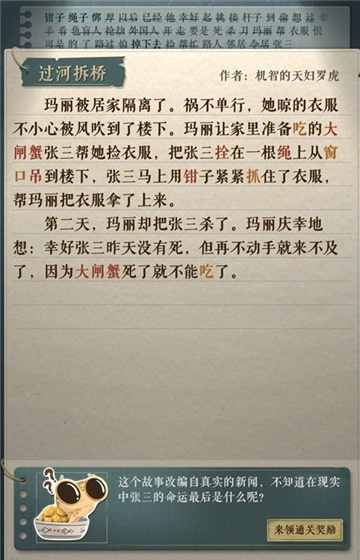 钳子 绳子 绑 厚 以后 已经 他 幸好 起 挑 接 杆子 到 偷 想 过 拿
手 看 色 盲人 抢劫 外国人 开 走 要 是 死 杀 刀 玛丽 帮 衣服 恨
可是 的 了 路过 怕 掉下去 捡 帮忙 路人 邻居 令居 张三
过河拆桥
作者：机智的天妇罗虎
玛丽被居家隔离了。祸不单行，她晾的衣服
不小心被风吹到了楼下。玛丽让家里准备吃的大
闸蟹张三帮她捡衣服，把张三拴在一根绳上从窗
口吊到楼下，张三马上用钳子紧紧抓住了衣服，
帮玛丽把衣服拿了上来。
第二天，玛丽却把张三杀了。玛丽庆幸地
想：幸好张三昨天没有死，但再不动手就来不及
了，因为大闸蟹死了就不能吃了。
这个故事改编自真实的新闻，不知道在现实
中张三的命运最后是什么呢？
来领通关奖励